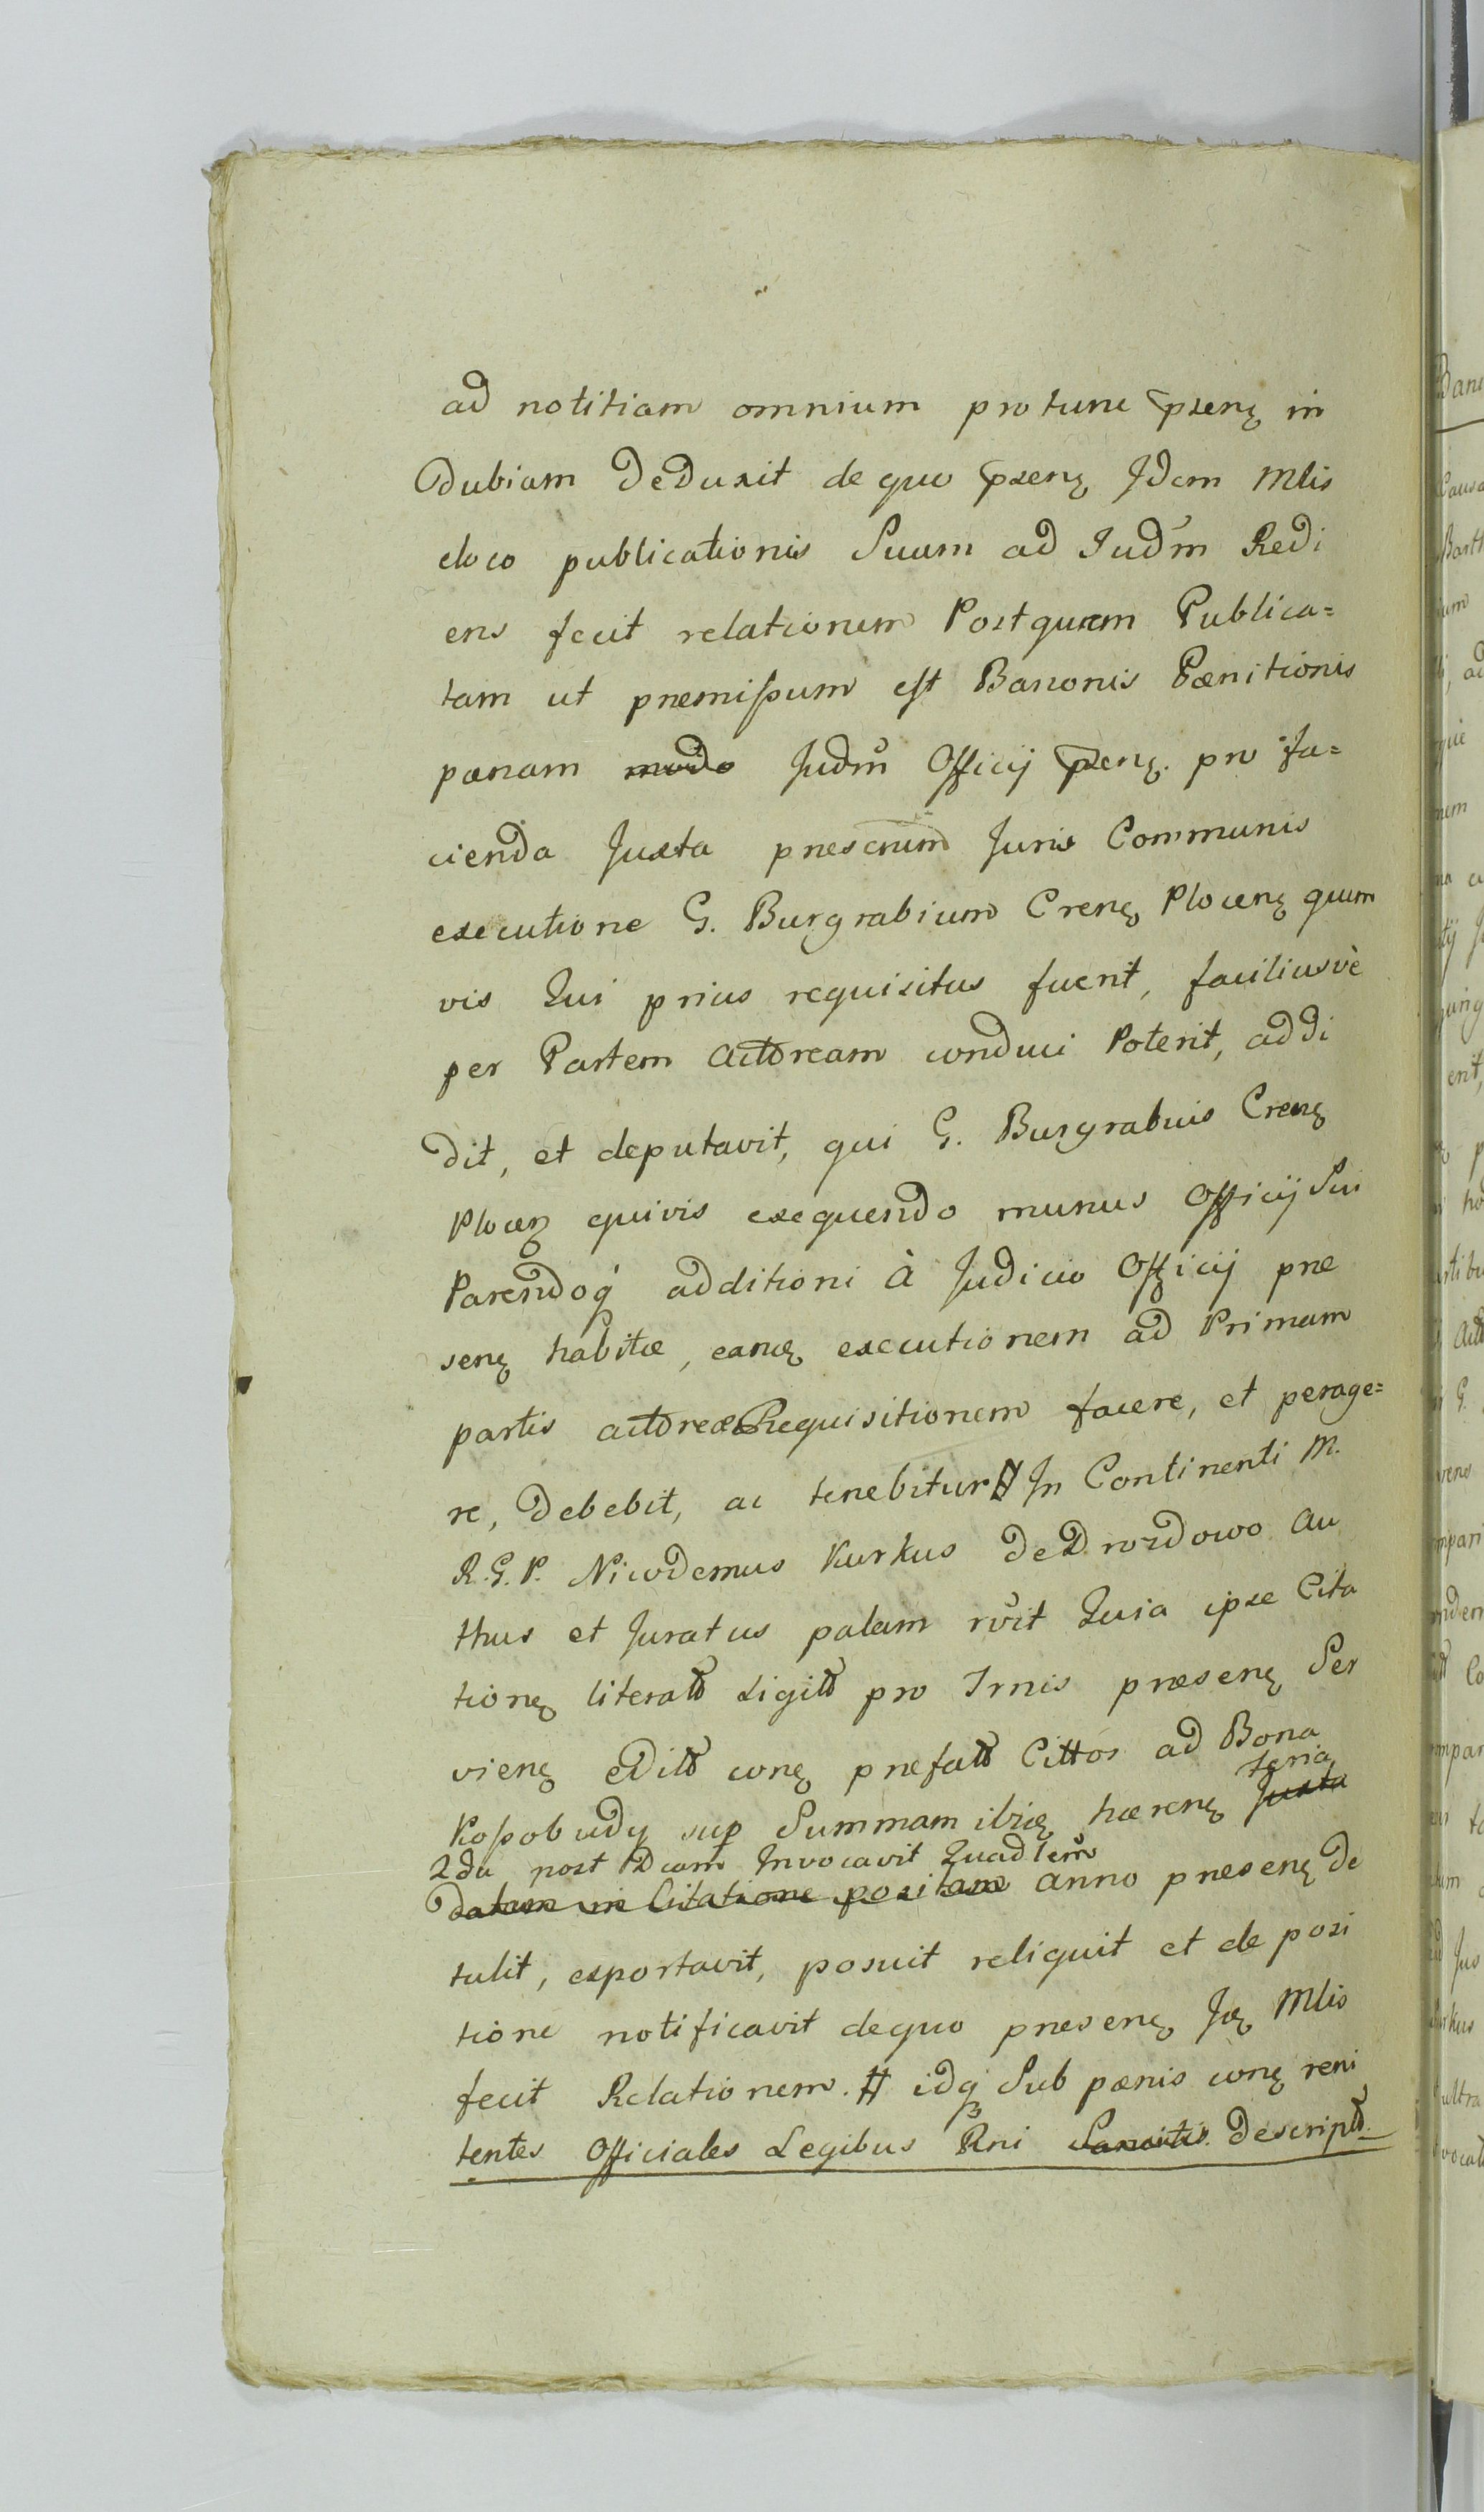 ad notitiam omnium pro tunc pseną in
dubiam deduxit de quo pseną Idem Mlis
eloco publicationis Suum ad Iudm Redi
ens fecit relationem Postquam Publica=
tam ut premissum est Banonis Pænitionis
pœnam modo Judm Officij pseną. pro fa=
cienda Juxta prescrium Juris Communis
executione G. Burgrabium Creną Ploceną quem
vis Qui prius requisitus fuerit, faciliusvè
per Partem actoream conduci Poterit, addi
dit, et deputavit, qui G. Burgrabius Creną
Plocen quivis exequendo munus Officij Sui
Parendoq additioni à Judicio Officij pre
seną habitæ, eamą executionem ad Primam
partis actoreæ Requisitionem facere, et perage=
re, Debebit, ac tenebitur # In Continenti M.
R. G. P. Nicodemus Kurkus de Drozdowo au
thus et Juratus palam rvit Quia ipse Cita
tioną literatt sigitt pro Irnis præseną Ser
vieną editt coną prefatt Cittos ad Bona
feria
Kossobudy sup Summam ibią hæreną Juxta
2da post Dcam Invocavit Quadlem
Datam in Citatione positam anno preseną de
tulit, exportavit, posuit reliquit et de posi
tione notificavit dequo preseną Ją Mlis
fecit Relationem. # idq Sub pœnis coną reni
tentes Officiales Legibus Rni Sancitis. Descriptt.